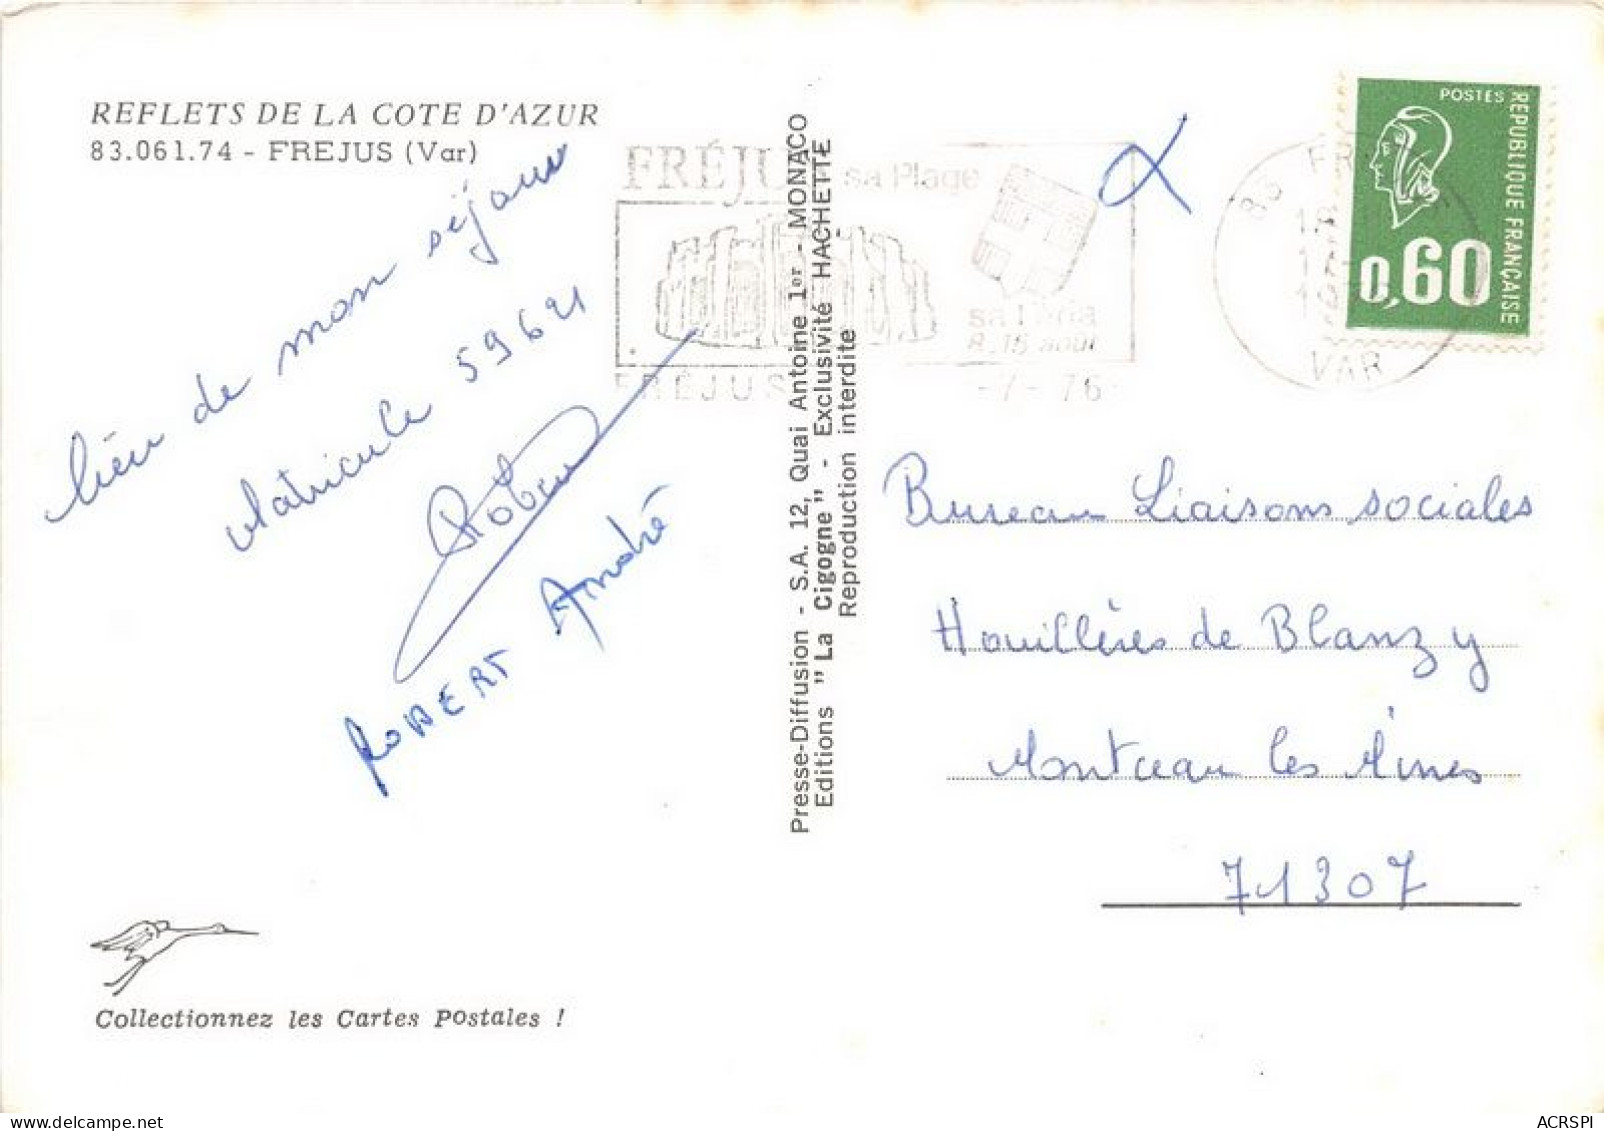 REFLETS DE LA COTE D'AZUR
83.061.74 - FREJUS (Var)
lieu de mon séjour
Matricule 59621
Robert
ROBERT André
Collectionnez les Cartes Postales !
Presse-Diffusion - S.A. 12, Quai Antoine 1er - MONACO
Editions "La Cigogne" - Exclusivité HACHETTE
Reproduction interdite
FRÉJU sa Plage
8.15 août
FRÉJUS
-7-76
83 FR
VAR
POSTES
REPUBLIQUE FRANÇAISE
0,60
Bureau Liaisons sociales
Houillères de Blanzy
Montceau les Mines
71307
ACRSPI